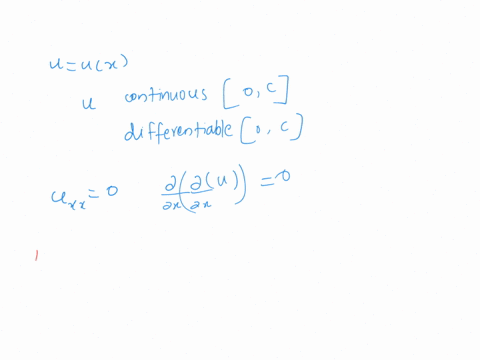 u = u(x)
u continuous [0, c]
differentiable [0, c)
u_xx = 0 ∂/∂x(∂/∂x(u)) = 0